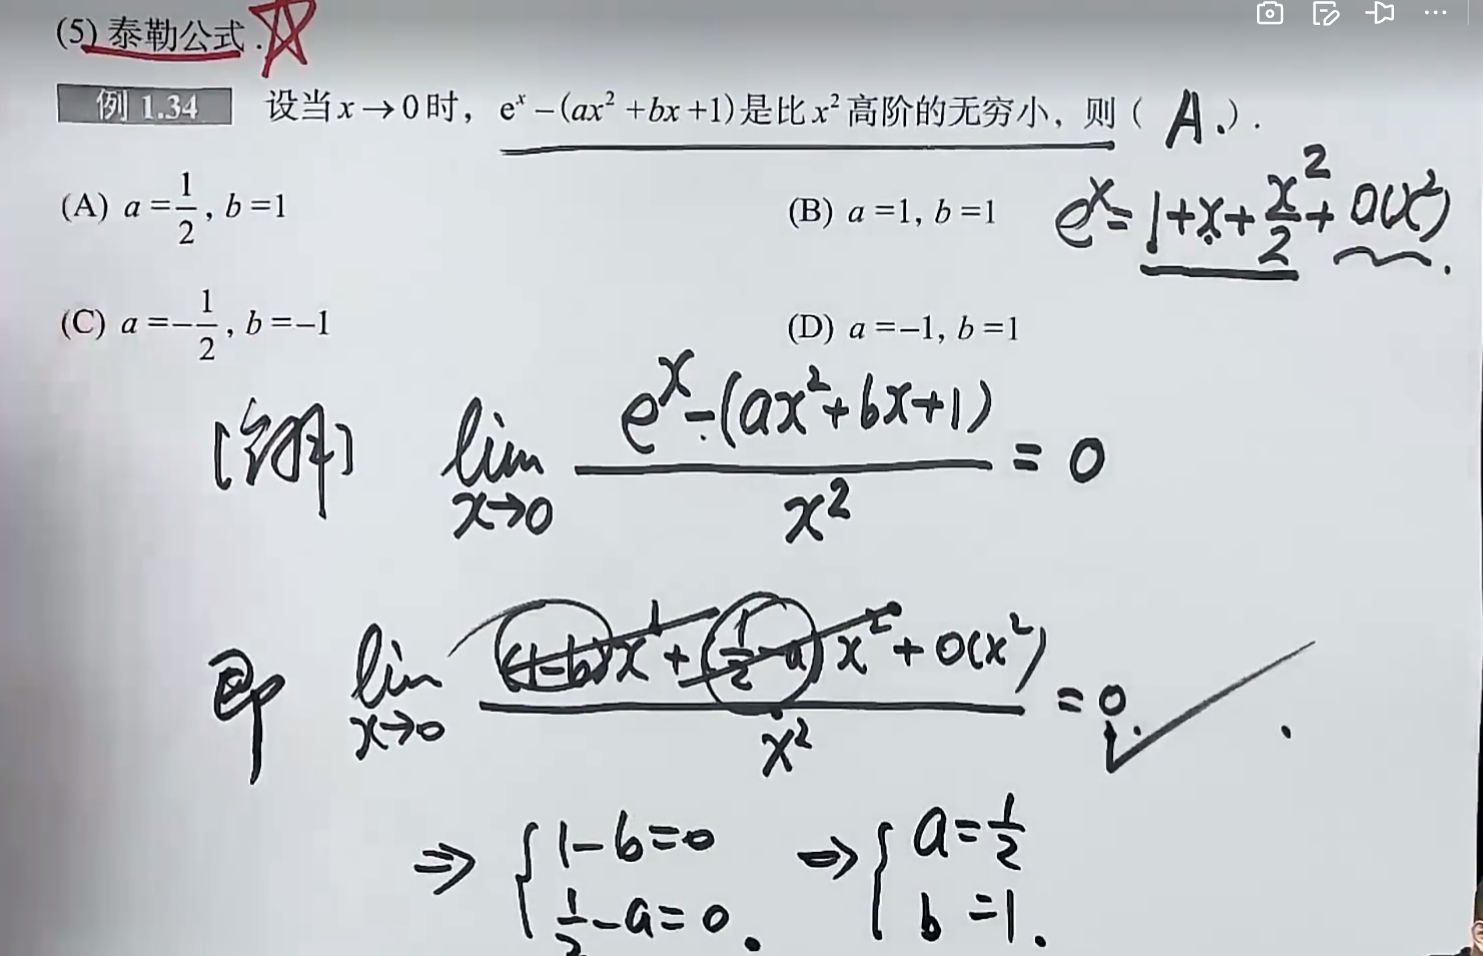 (5) 泰勒公式.
例 1.34 设当 x→0 时, eˣ−(ax²+bx+1)是比 x² 高阶的无穷小, 则 ( A. ).
(A) a=1/2, b=1 (B) a=1, b=1
eˣ=1+x+x²/2+o(x²).
(C) a=−1/2, b=−1 (D) a=−1, b=1
[详解] lim x→0 (eˣ−(ax²+bx+1))/x² = 0
即 lim x→0 ((1−b)x¹+(1/2−a)x²+o(x²))/x² = 0.
⇒ { 1−b=0 ⇒ { a=1/2
1/2−a=0. b=1.